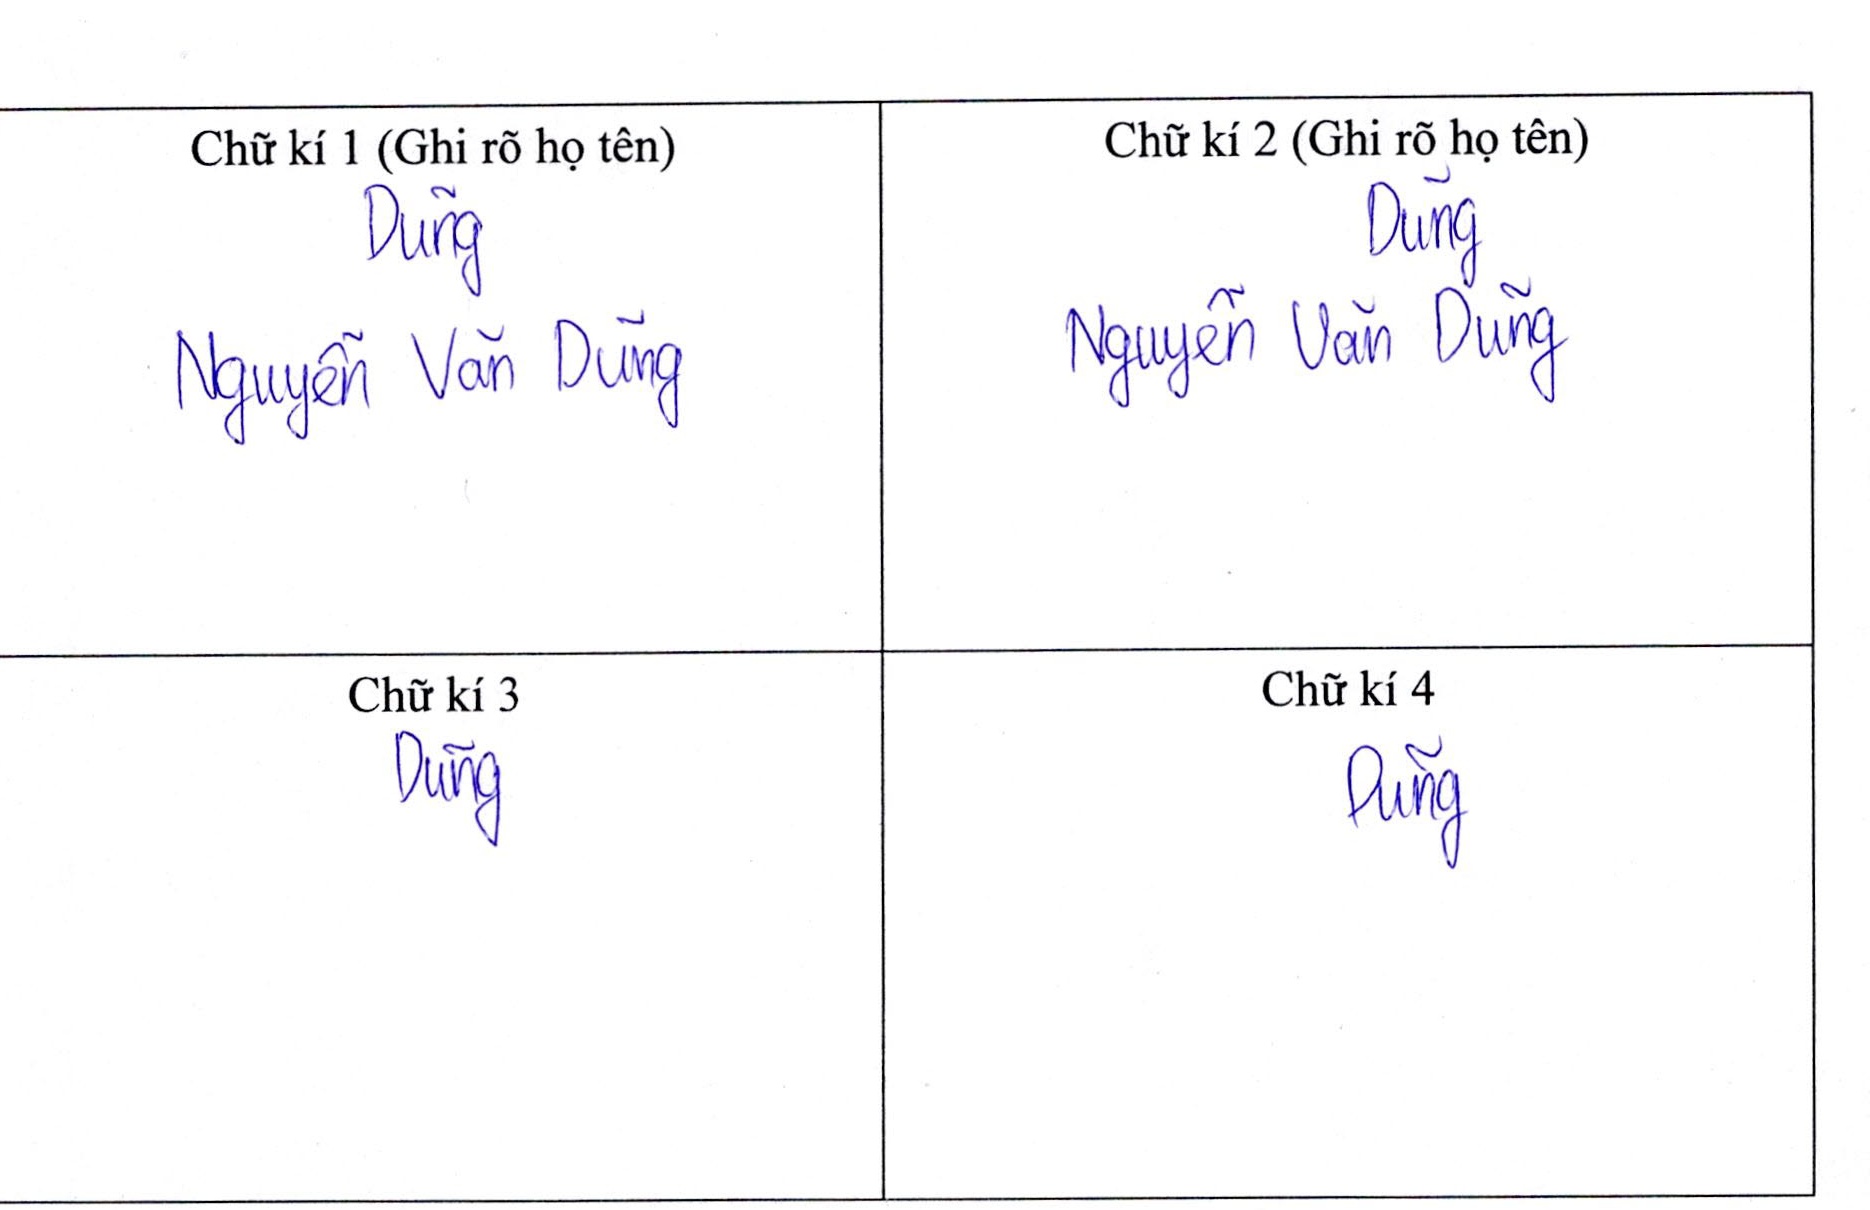 Chữ kí 1 (Ghi rõ họ tên)
Dũng
Nguyễn Văn Dũng
Chữ kí 2 (Ghi rõ họ tên)
Dũng
Nguyễn Văn Dũng
Chữ kí 3
Dũng
Chữ kí 4
Dũng